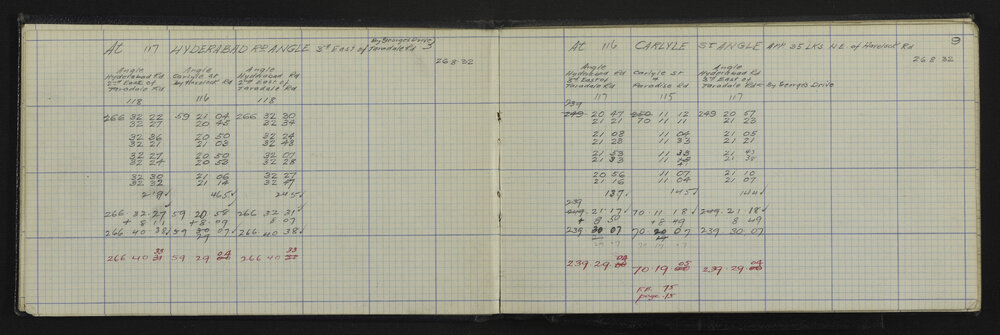 At 117 HYDERABAD RD ANGLE 3rd East of Taradale Rd
By Georges Drive
26 8 32
Angle Angle Angle
Hyderabad Rd Carlyle St Hyderabad Rd
2nd East of By Havelock Rd 2nd East of
Taradale Rd Taradale Rd
118 116 118
266 32 22 59 21 04 266 32 30
32 27 20 45 32 34
32 36 20 50 32 24
32 21 21 03 32 43
32 27 20 50 32 07
32 24 20 53 32 28
32 30 21 06 32 27
32 32 21 14 32 47
219 465 245
266 . 32 . 27 59 20 58 266 32 31
+ 8 11 + 8 . 09 8 07
266 40 38 59 07 266 40 38
266 . 40 . 33 59 29 04 266 40 33
9
At 116 CARLYLE ST ANGLE APP 35 LKS N.E. of Havelock Rd
26 8 32
Angle Angle
Hyderabad Rd Carlyle St Hyderabad Rd
3rd East of 3rd East of
Taradale Rd Paradise Rd Taradale Rd By Georges Drive
117 115 117
239
249 20 47 250 11 12 249 20 57
21 21 70 11 11 21 23
21 08 11 04 21 05
21 28 11 33 21 21
21 53 11 33 21 43
21 33 11 21 38
20 56 11 07 21 10
21 16 11 04 21 07
137 145 144
239
249 . 21 . 17 70 . 11 . 18 249 . 21 . 18
+ 8 50 + 8 49 8 49
239 30 07 70 . 20 07 239 30 07
239 . 29 . 04 70 . 19 . 05 239 . 29 . 04
F.B. 75
page . 15